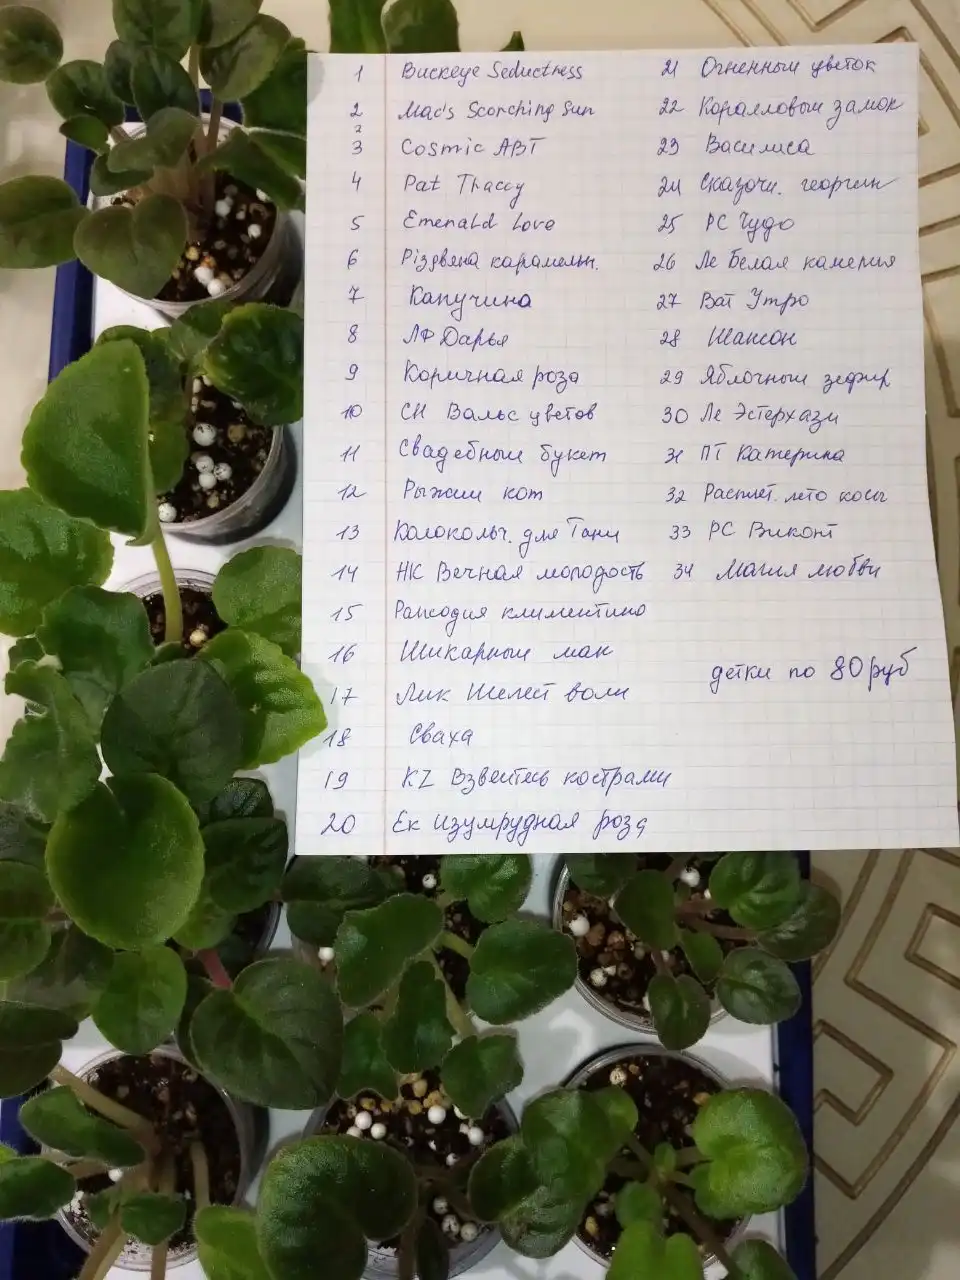 1 Buckeye Seductress
2 Mac's Scorching Sun
3 Cosmic ABT
4 Pat Thacey
5 Emerald Love
6 Різдвяна карамельн.
7 Капучина
8 ЛФ Дарья
9 Коричная роза
10 СН Вальс цветов
11 Свадебный букет
12 Рыжий кот
13 Колокольч. для Тани
14 НК Вечная молодость
15 Рапсодия климентино
16 Шикарный мак
17 Лик Шелест волн
18 Сваха
19 KZ Взвейтесь кострами
20 Ек изумрудная роза
21 Огненный цветок
22 Коралловый замок
23 Василиса
24 Сказочн. георгин
25 РС Чудо
26 Ле Белая камелия
27 Ват Утро
28 Шансон
29 Яблочный зефир
30 Ле Эстерхази
31 ПТ Катерина
32 Расплет. лето косы
33 РС Виконт
34 Магия любви
детки по 80 руб